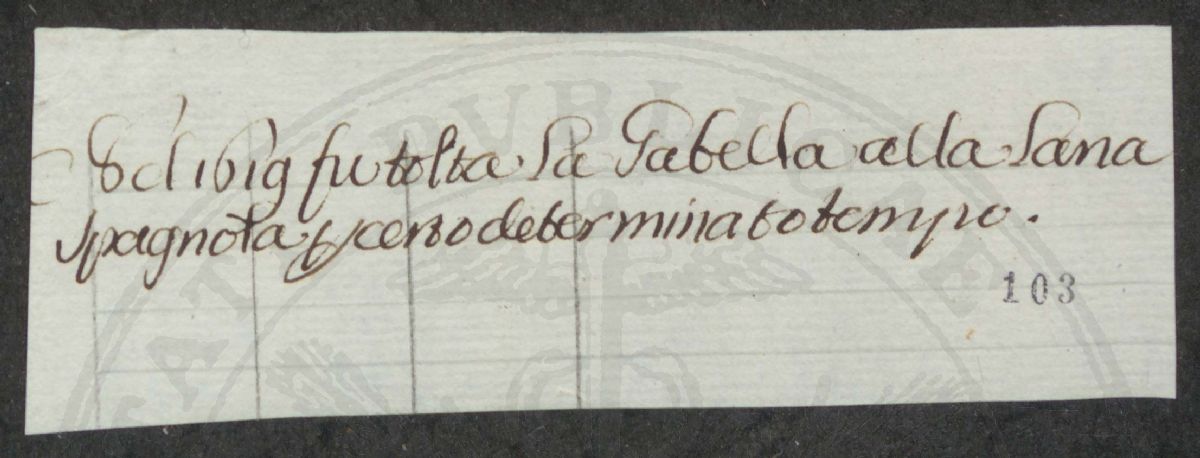 Del 1619 fu tolta la Gabella alla lana
spagnola p certo determinato tempo.
103